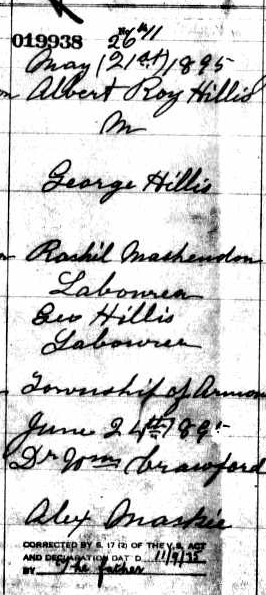 019938 26th
May (21st) 1895
Albert Roy Hillis
M
George Hillis
Rachil Mashendon
Labourer
Geo Hillis
Labourer
Township of
June 24th 189
Dr Wm Crawford
Alex Maskie
CORRECTED BY S. 17 (2) OF THE V.S. ACT
AND DECLARATION DAT D 11/9/35
BY The father